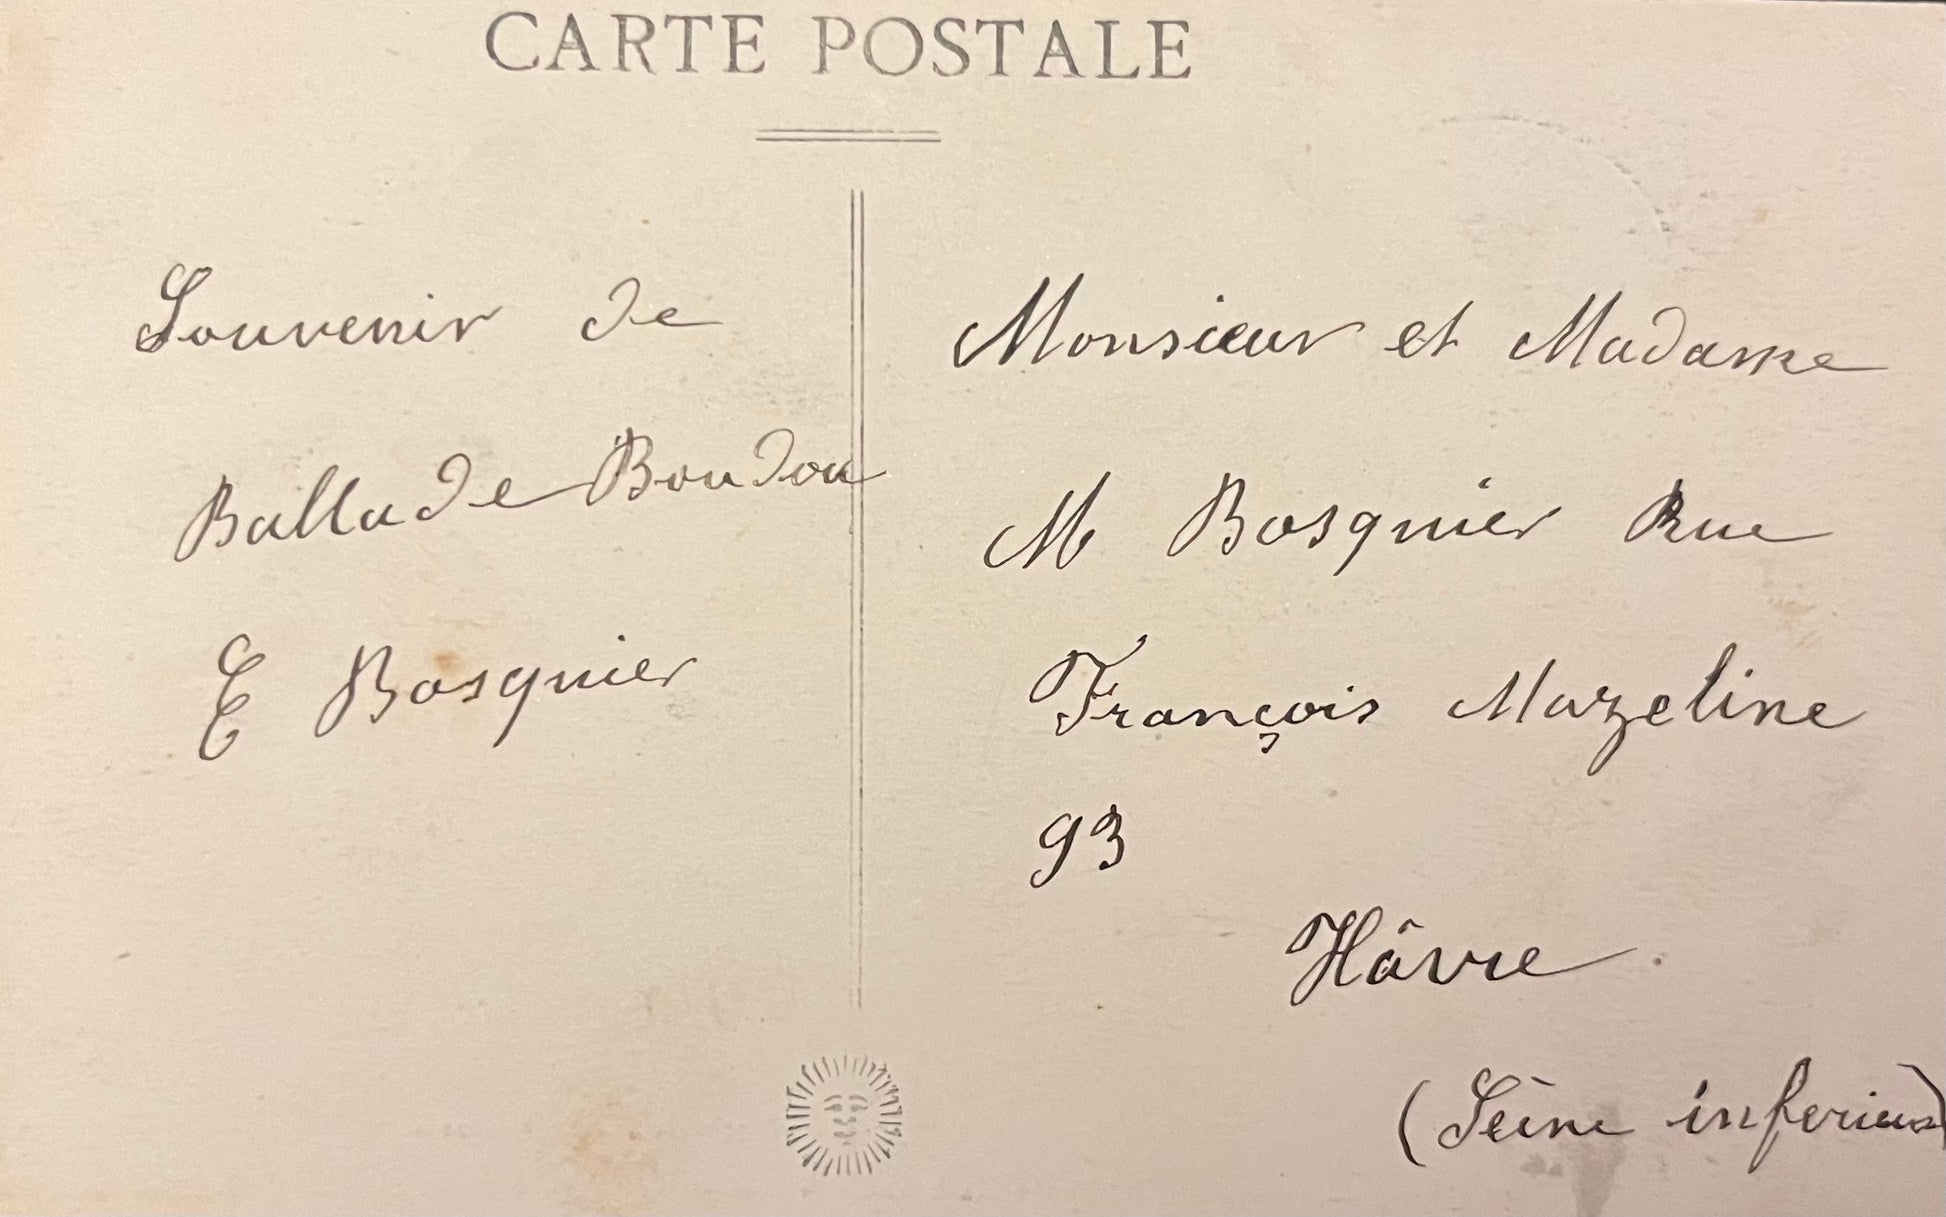 CARTE POSTALE
Souvenir de
Ballade Boudou
E Bosquier
Monsieur et Madame
M Bosquier Rue
François Mazeline
93
Hâvre.
(Seine inferieur)